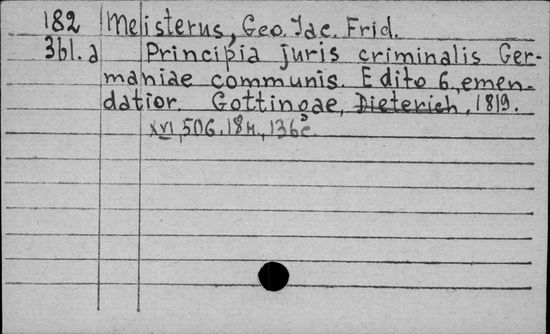 182 Meisterus, Geo. Jac. Frid.
361.a Principia juris criminalis Ger-
maniae communis. Edito 6., emen-
datior. Gottingae, Dieterich, 1819.
XVI, 506. 18